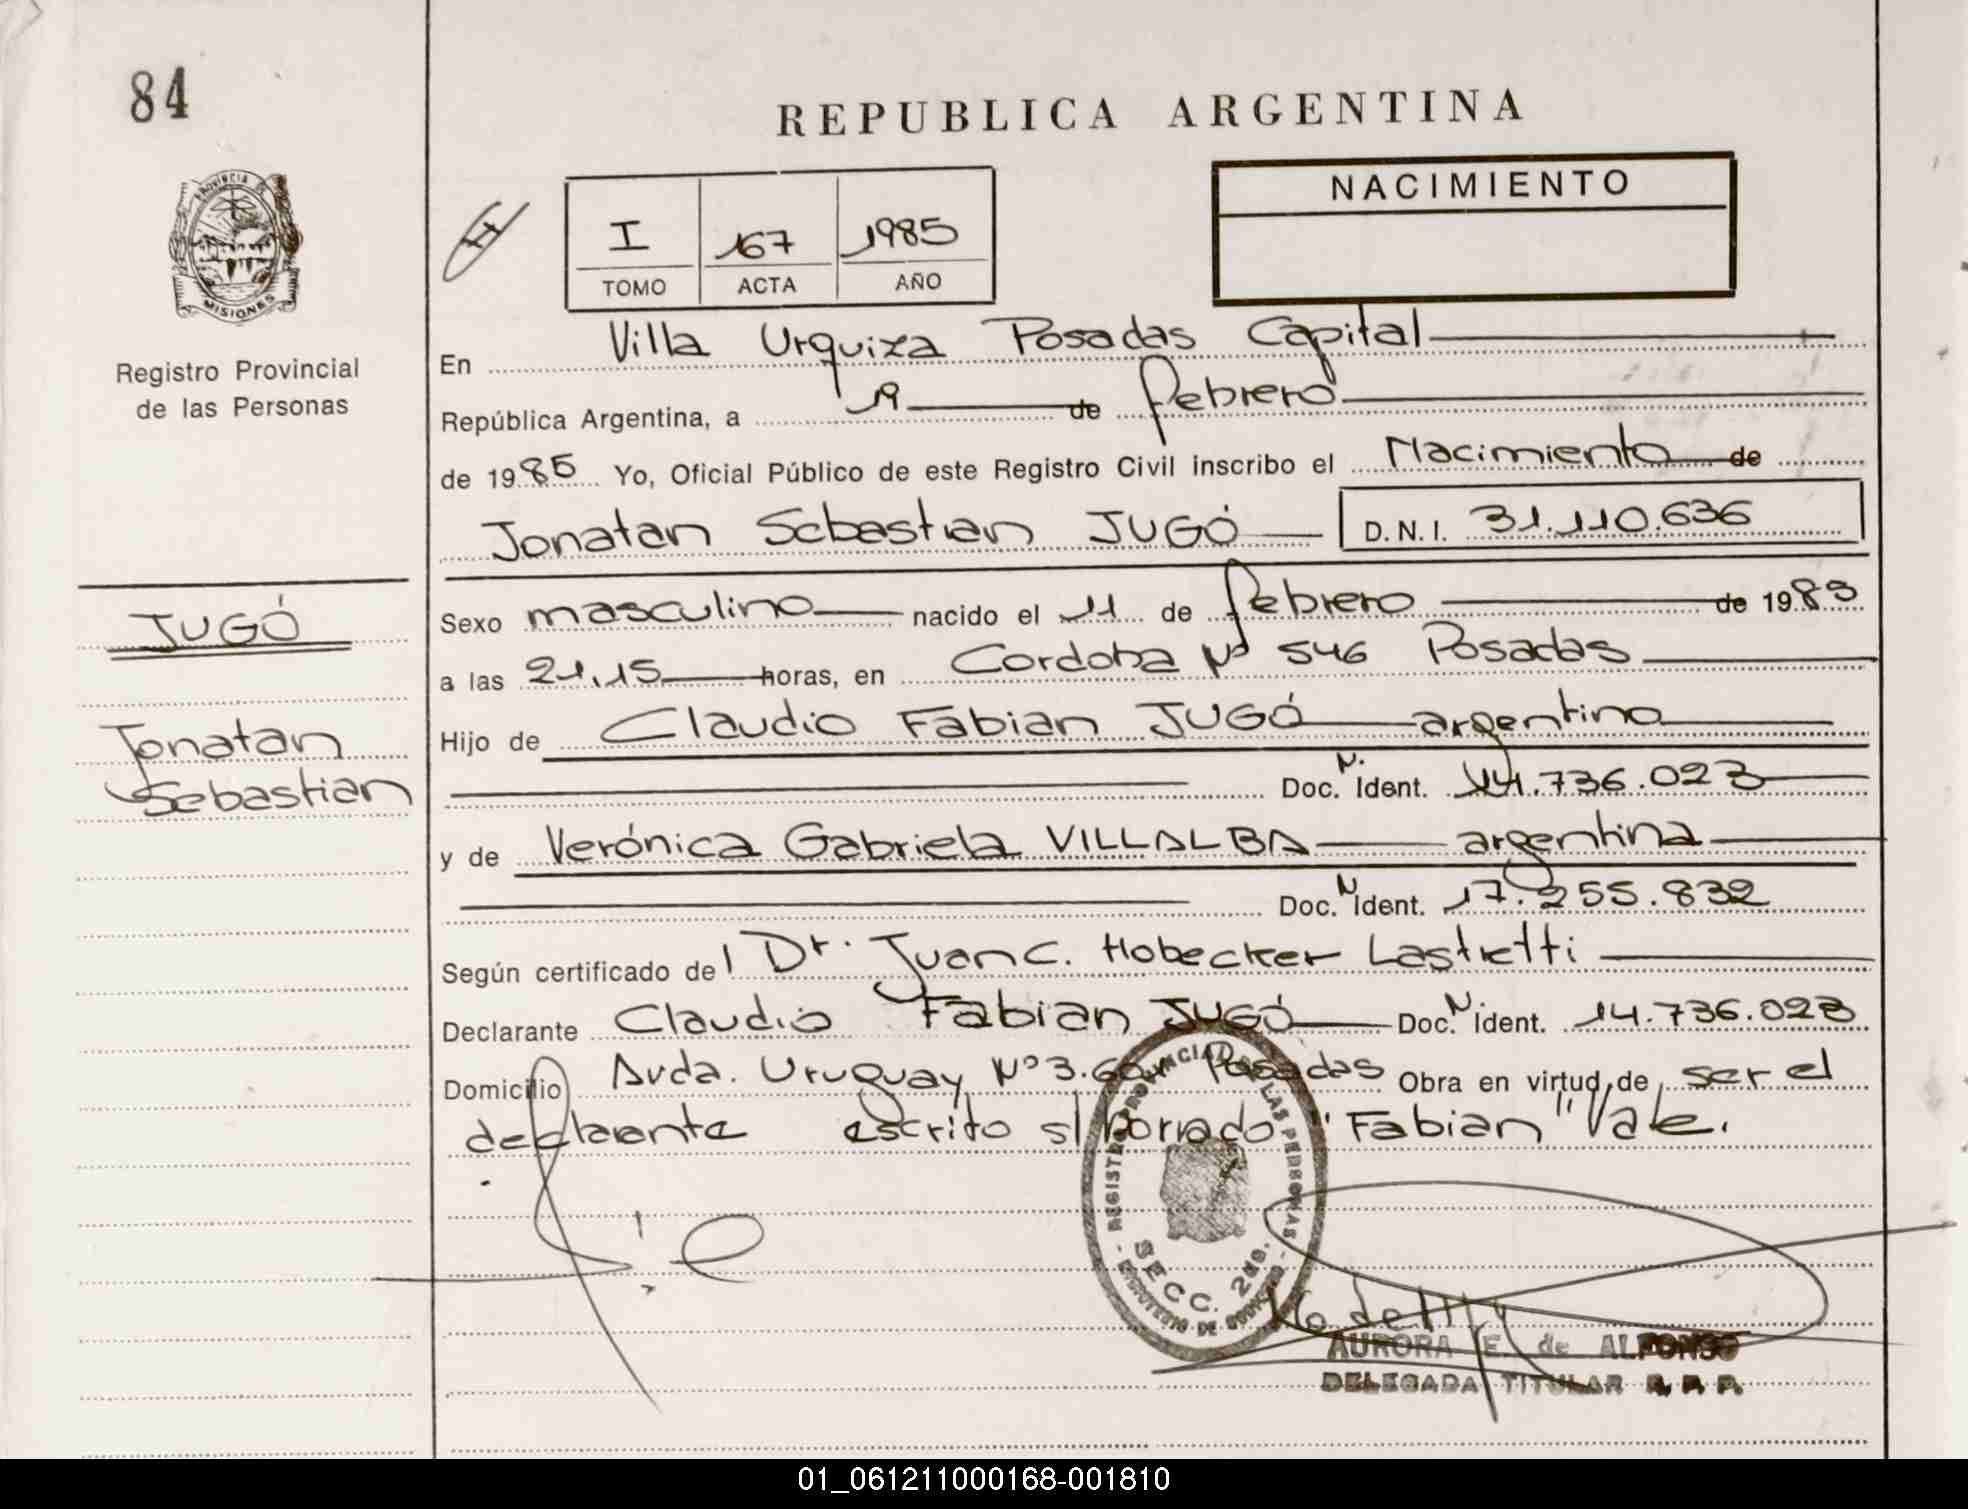 84
REPUBLICA ARGENTINA
PROVINCIA DE
MISIONES
Registro Provincial
de las Personas
I 167 1985
TOMO ACTA AÑO
NACIMIENTO
En Villa Urquiza Posadas Capital
República Argentina, a 19 de febrero
de 1985 Yo, Oficial Público de este Registro Civil inscribo el Nacimiento de
Jonatan Sebastian JUGÓ D.N.I. 31.110.636
JUGÓ
Jonatan
Sebastian
Sexo masculino nacido el 11 de febrero de 1985
a las 21,15 horas, en Cordoba Nº 546 Posadas
Hijo de Claudio Fabian JUGÓ argentino
Doc. N. Ident. 14.736.023
y de Verónica Gabriela VILLALBA argentina
Doc. N Ident. 17.255.832
Según certificado del Dr. Juan C. Hobecker Lastretti
Declarante Claudio Fabian JUGÓ Doc. N Ident. 14.736.023
Domicilio Avda. Uruguay Nº Posadas Obra en virtud de ser el
declarante escrito s/ borrado "Fabian" Vale.
REGISTRO PROVINCIAL DE LAS PERSONAS
SECC. 2da.
AURORA E. de ALFONSO
DELEGADA TITULAR R. P. P.
01_061211000168-001810